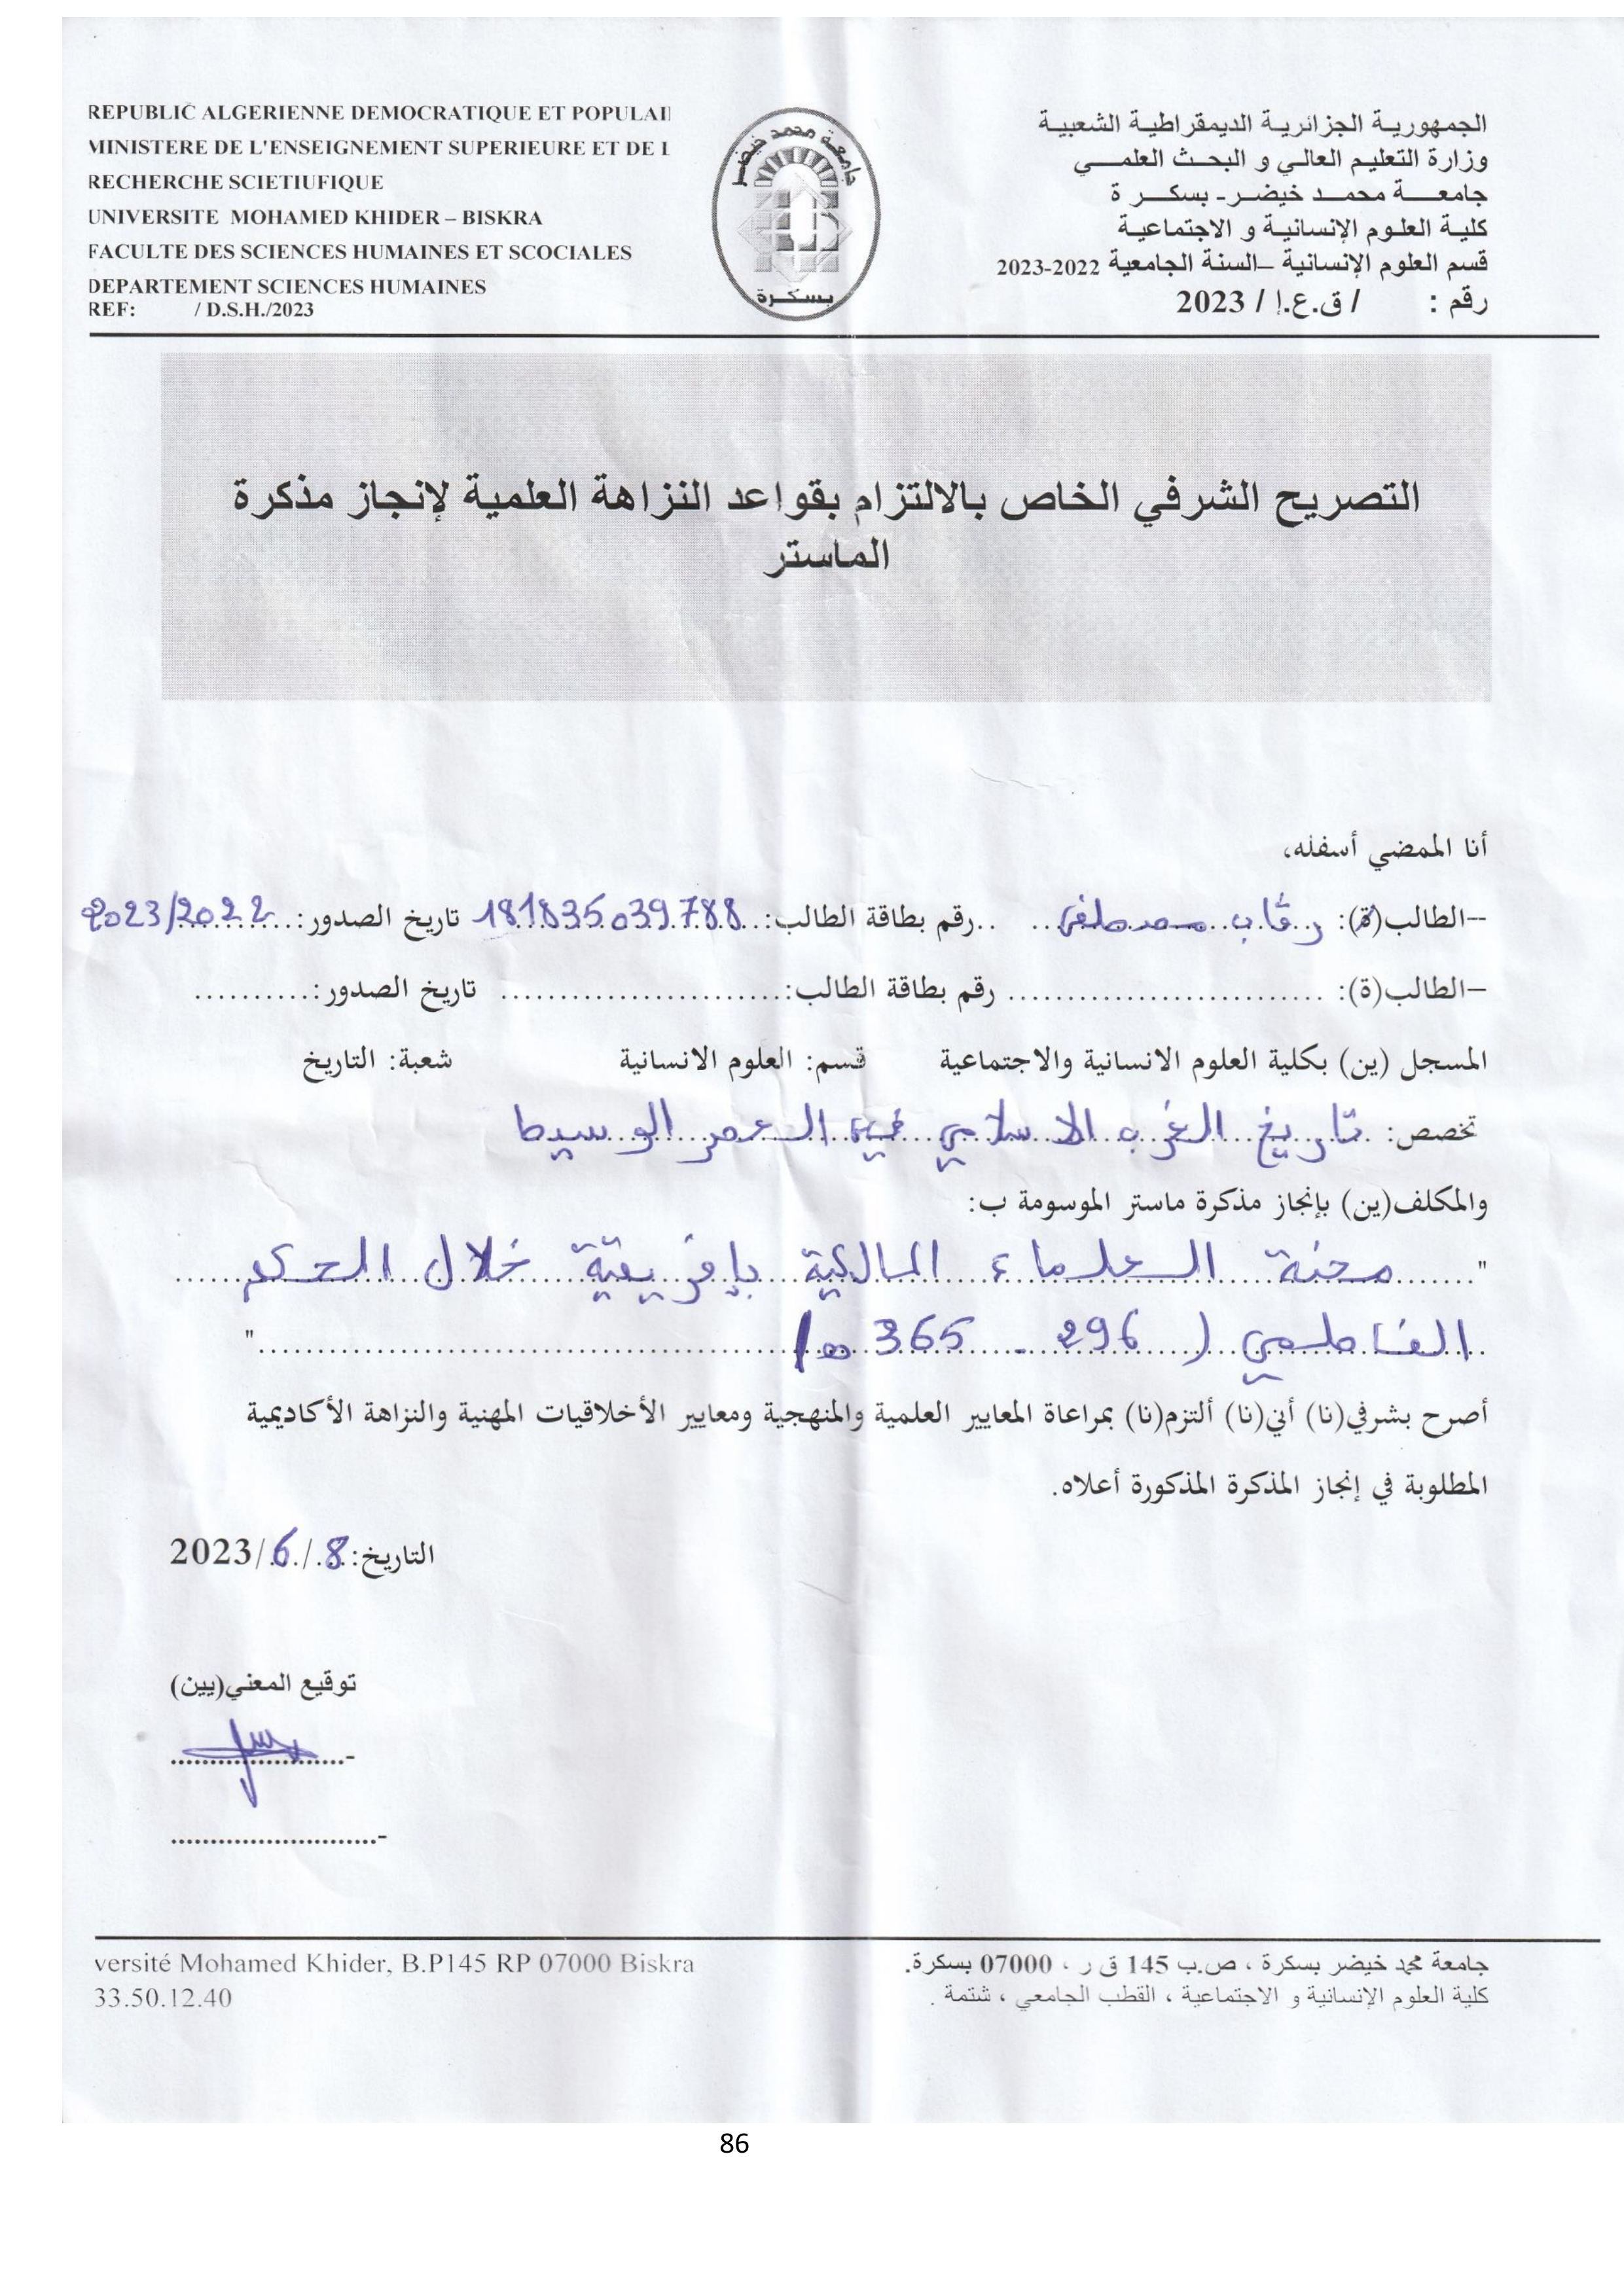 REPUBLIC ALGERIENNE DEMOCRATIQUE ET POPULAI
MINISTERE DE L'ENSEIGNEMENT SUPERIEURE ET DE L
RECHERCHE SCIETIUFIQUE
UNIVERSITE MOHAMED KHIDER – BISKRA
FACULTE DES SCIENCES HUMAINES ET SCOCIALES
DEPARTEMENT SCIENCES HUMAINES
REF: / D.S.H./2023
جامعة محمد خيضر
بسكرة
الجمهورية الجزائرية الديمقراطية الشعبية
وزارة التعليم العالي و البحث العلمي
جامعة محمد خيضر- بسكرة
كلية العلوم الإنسانية و الاجتماعية
قسم العلوم الإنسانية –السنة الجامعية 2022-2023
رقم : / ق.ع.إ / 2023
التصريح الشرفي الخاص بالالتزام بقواعد النزاهة العلمية لإنجاز مذكرة
الماستر
أنا الممضي أسفله،
–الطالب(ة): رقاب مصطفى رقم بطاقة الطالب: 181835039788 تاريخ الصدور: 2023/2022
–الطالب(ة): .......................... رقم بطاقة الطالب:........................ تاريخ الصدور:..........
المسجل (ين) بكلية العلوم الانسانية والاجتماعية قسم: العلوم الانسانية شعبة: التاريخ
تخصص: تاريخ الغرب الاسلامي في العصر الوسيط
والمكلف(ين) بإنجاز مذكرة ماستر الموسومة ب:
" محنة العلماء المالكية بإفريقية خلال الحكم
الفاطمي ( 296 - 365 ه) "
أصرح بشرفي(نا) أني(نا) ألتزم(نا) بمراعاة المعايير العلمية والمنهجية ومعايير الأخلاقيات المهنية والنزاهة الأكاديمية
المطلوبة في إنجاز المذكرة المذكورة أعلاه.
التاريخ: 8/6/2023
توقيع المعني(يين)
versité Mohamed Khider, B.P145 RP 07000 Biskra
33.50.12.40
جامعة محمد خيضر بسكرة ، ص.ب 145 ق ر ، 07000 بسكرة.
كلية العلوم الإنسانية و الاجتماعية ، القطب الجامعي ، شتمة .
86